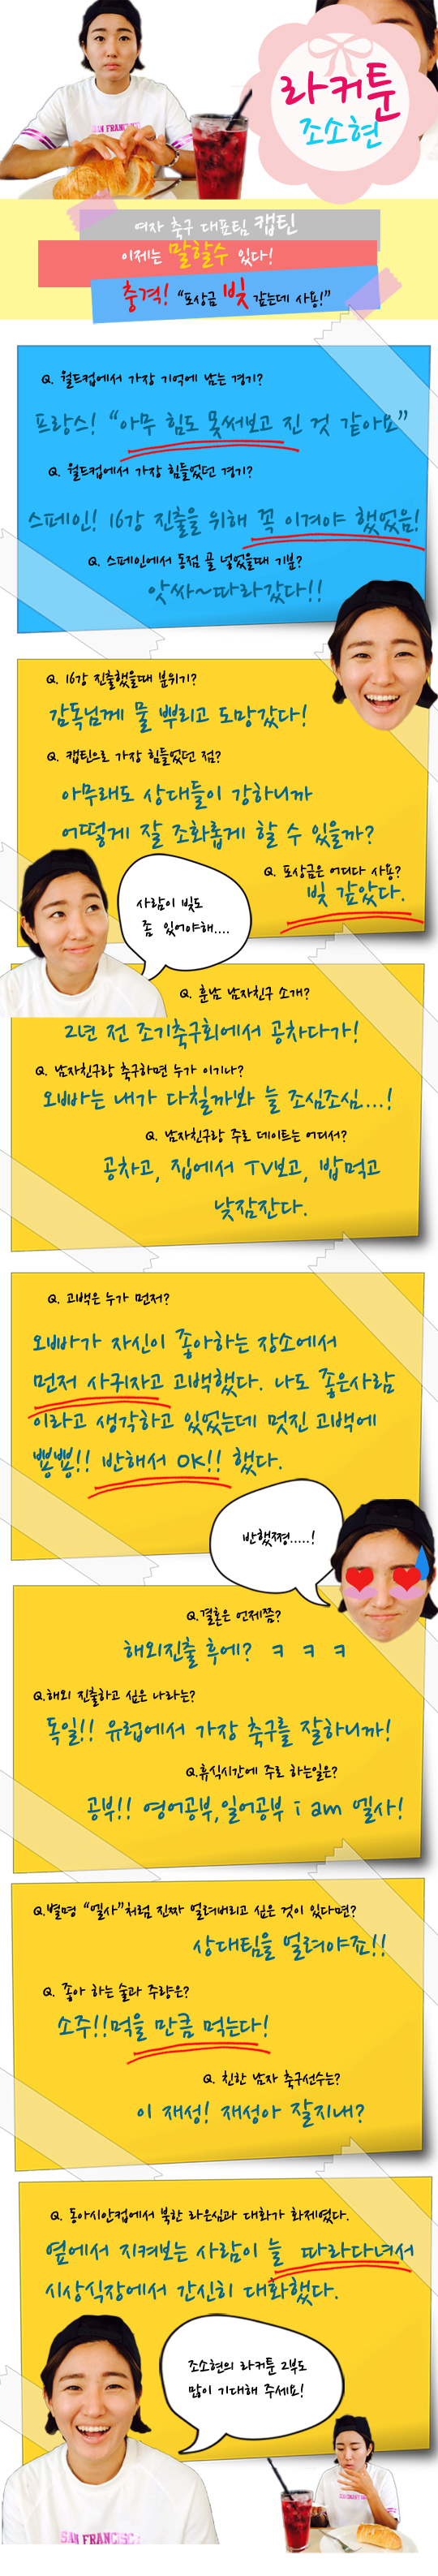 라커툰
조소현
SAN FRANCISC
여자 축구 대표팀 캡틴
이제는 말할수 있다!
충격! “포상금 빚 갚는데 사용!”
Q. 월드컵에서 가장 기억에 남는 경기?
프랑스! “아무 힘도 못써보고 진 것 같아요”
Q. 월드컵에서 가장 힘들었던 경기?
스페인! 16강 진출을 위해 꼭 이겨야 했었음!
Q. 스페인에서 동점 골 넣었을때 기분?
앗싸~따라갔다!!
Q. 16강 진출했을때 분위기?
감독님께 물 뿌리고 도망갔다!
Q. 캡틴으로 가장 힘들었던 점?
아무래도 상대들이 강하니까
어떻게 잘 조화롭게 할 수 있을까?
Q. 포상금은 어디다 사용?
빚 갚았다.
사람이 빚도
좀 있어야해....
Q. 훈남 남자친구 소개?
2년 전 조기축구회에서 공차다가!
Q. 남자친구랑 축구하면 누가 이기나?
오빠는 내가 다칠까봐 늘 조심조심...!
Q. 남자친구랑 주로 데이트는 어디서?
공차고, 집에서 TV보고, 밥먹고
낮잠잔다.
Q. 고백은 누가 먼저?
오빠가 자신이 좋아하는 장소에서
먼저 사귀자고 고백했다. 나도 좋은사람
이라고 생각하고 있었는데 멋진 고백에
뿅뿅!! 반해서 OK!! 했다.
반했쪙.....!
Q.결혼은 언제쯤?
해외진출 후에? ㅋ ㅋ ㅋ
Q.해외 진출하고 싶은 나라는?
독일!! 유럽에서 가장 축구를 잘하니까!
Q.휴식시간에 주로 하는일은?
공부!! 영어공부,일어공부 i am 엘사!
Q.별명 “엘사”처럼 진짜 얼려버리고 싶은 것이 있다면?
상대팀을 얼려야죠!!
Q. 좋아 하는 술과 주량은?
소주!!먹을 만큼 먹는다!
Q. 친한 남자 축구선수는?
이 재성! 재성아 잘지내?
Q. 동아시안컵에서 북한 라은심과 대화가 화제였다.
옆에서 지켜보는 사람이 늘 따라다녀서
시상식장에서 간신히 대화했다.
조소현의 라커툰 2부도
많이 기대해 주세요!
SAN FRANCISC